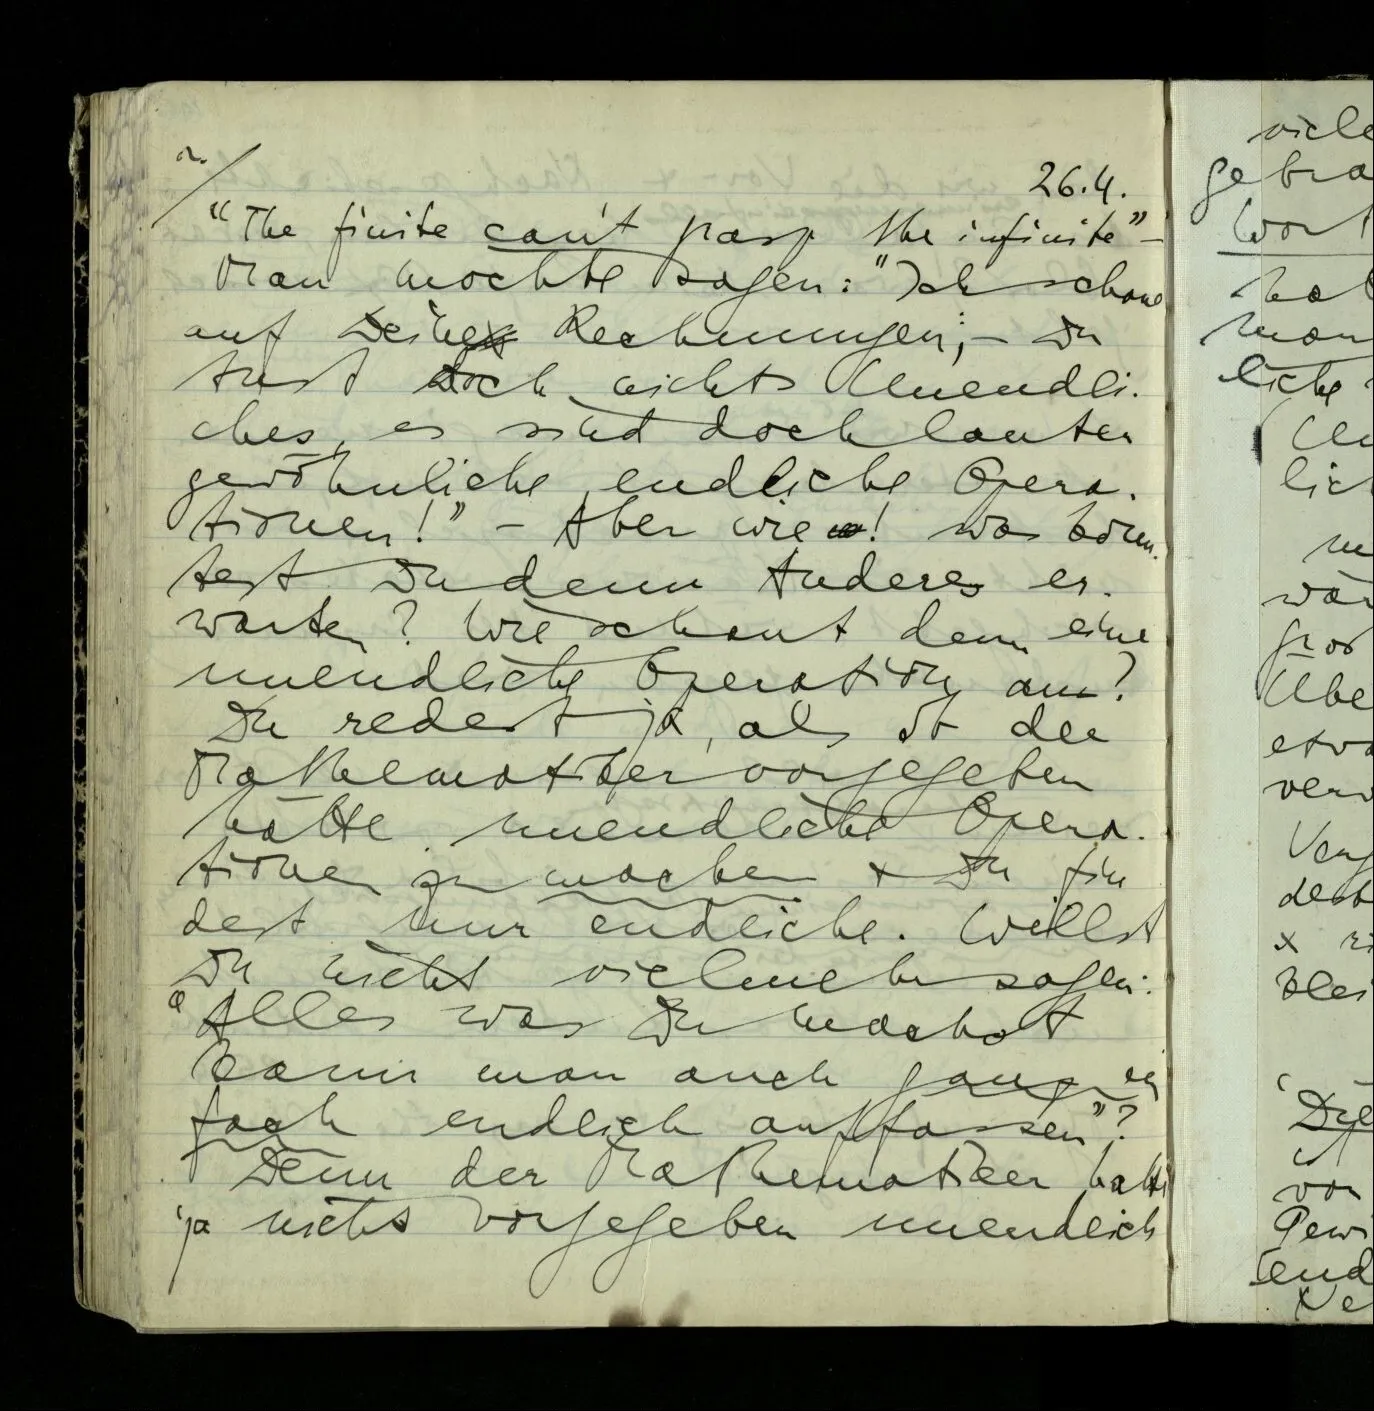 26.4.
"The finite can't grasp the infinite" –
Man möchte sagen: "Ich schaue
auf Deine Rechnungen; – Du
tust doch nichts Unendli-
ches, es sind doch lauter
gewöhnliche endliche Opera-
tionen!" – Aber wie! was könn-
test Du denn Anderes er-
warten? Wie schaut denn eine
unendliche Operation aus?
Du redest ja, als ob der
Mathematiker vorgegeben
hätte unendliche Opera-
tionen zu machen + Du fin
dest nur endliche. Willst
Du nicht vielmehr sagen:
"Alles was Du machst
kann man auch ganz ein
fach endlich auffassen"?
Denn der Mathematiker hatte
ja nicht vorgegeben unendlich
viele
gebra
Wort
hat
man
liche
Un
lich
wär
groß
Übe
etwa
verw
Verg
dest
x ri
klei
Die
von
Gewi